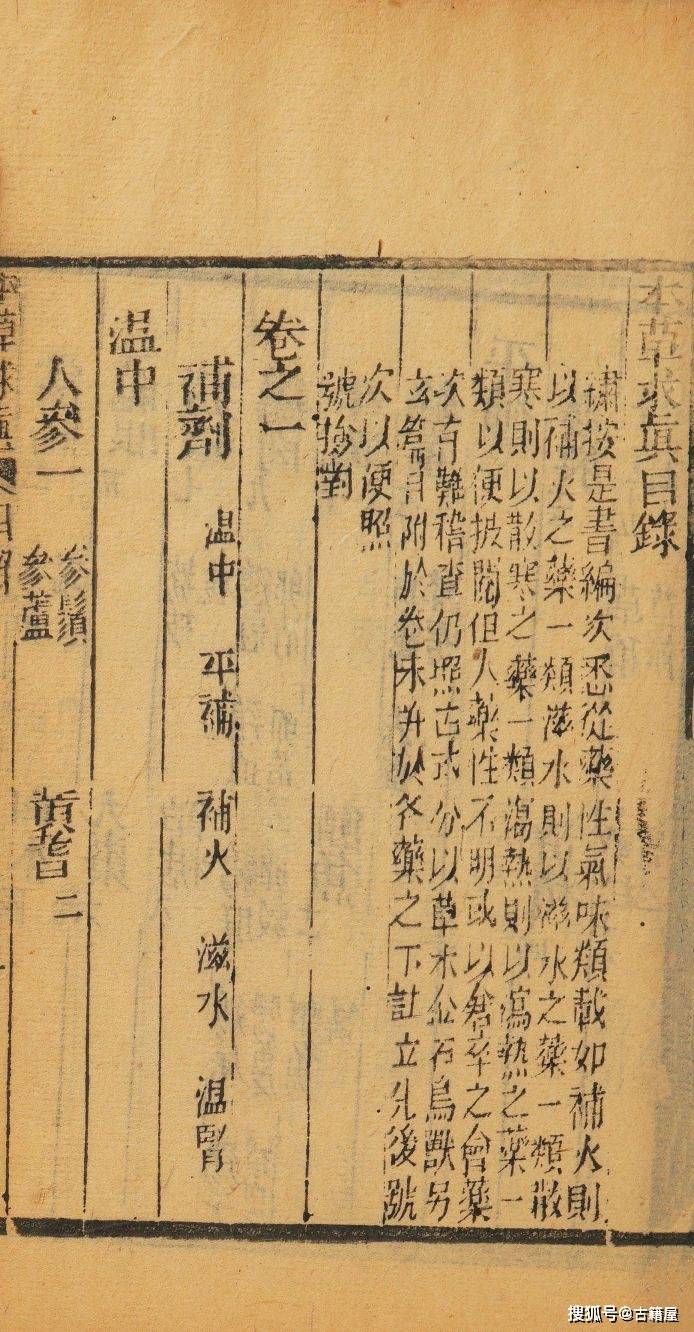 本草求真目錄
繡按是書編次悉從藥性氣味類載如補火則
以補火之藥一類滋水則以滋水之藥一類散
寒則以散寒之藥一類瀉熱則以瀉熱之藥一
類以便披閱但人藥性不明或以倉卒之會藥
次有難稽查仍照古式分以草木公石鳥獸另
玄篇目附於卷末并於各藥之下註立先後號
次以便照
號撿對
卷之一
補劑 温中 平補 補火 滋水 温腎
温中
人參一 參鬚 參蘆 黃耆二
本草求真
搜狐号@古籍屋